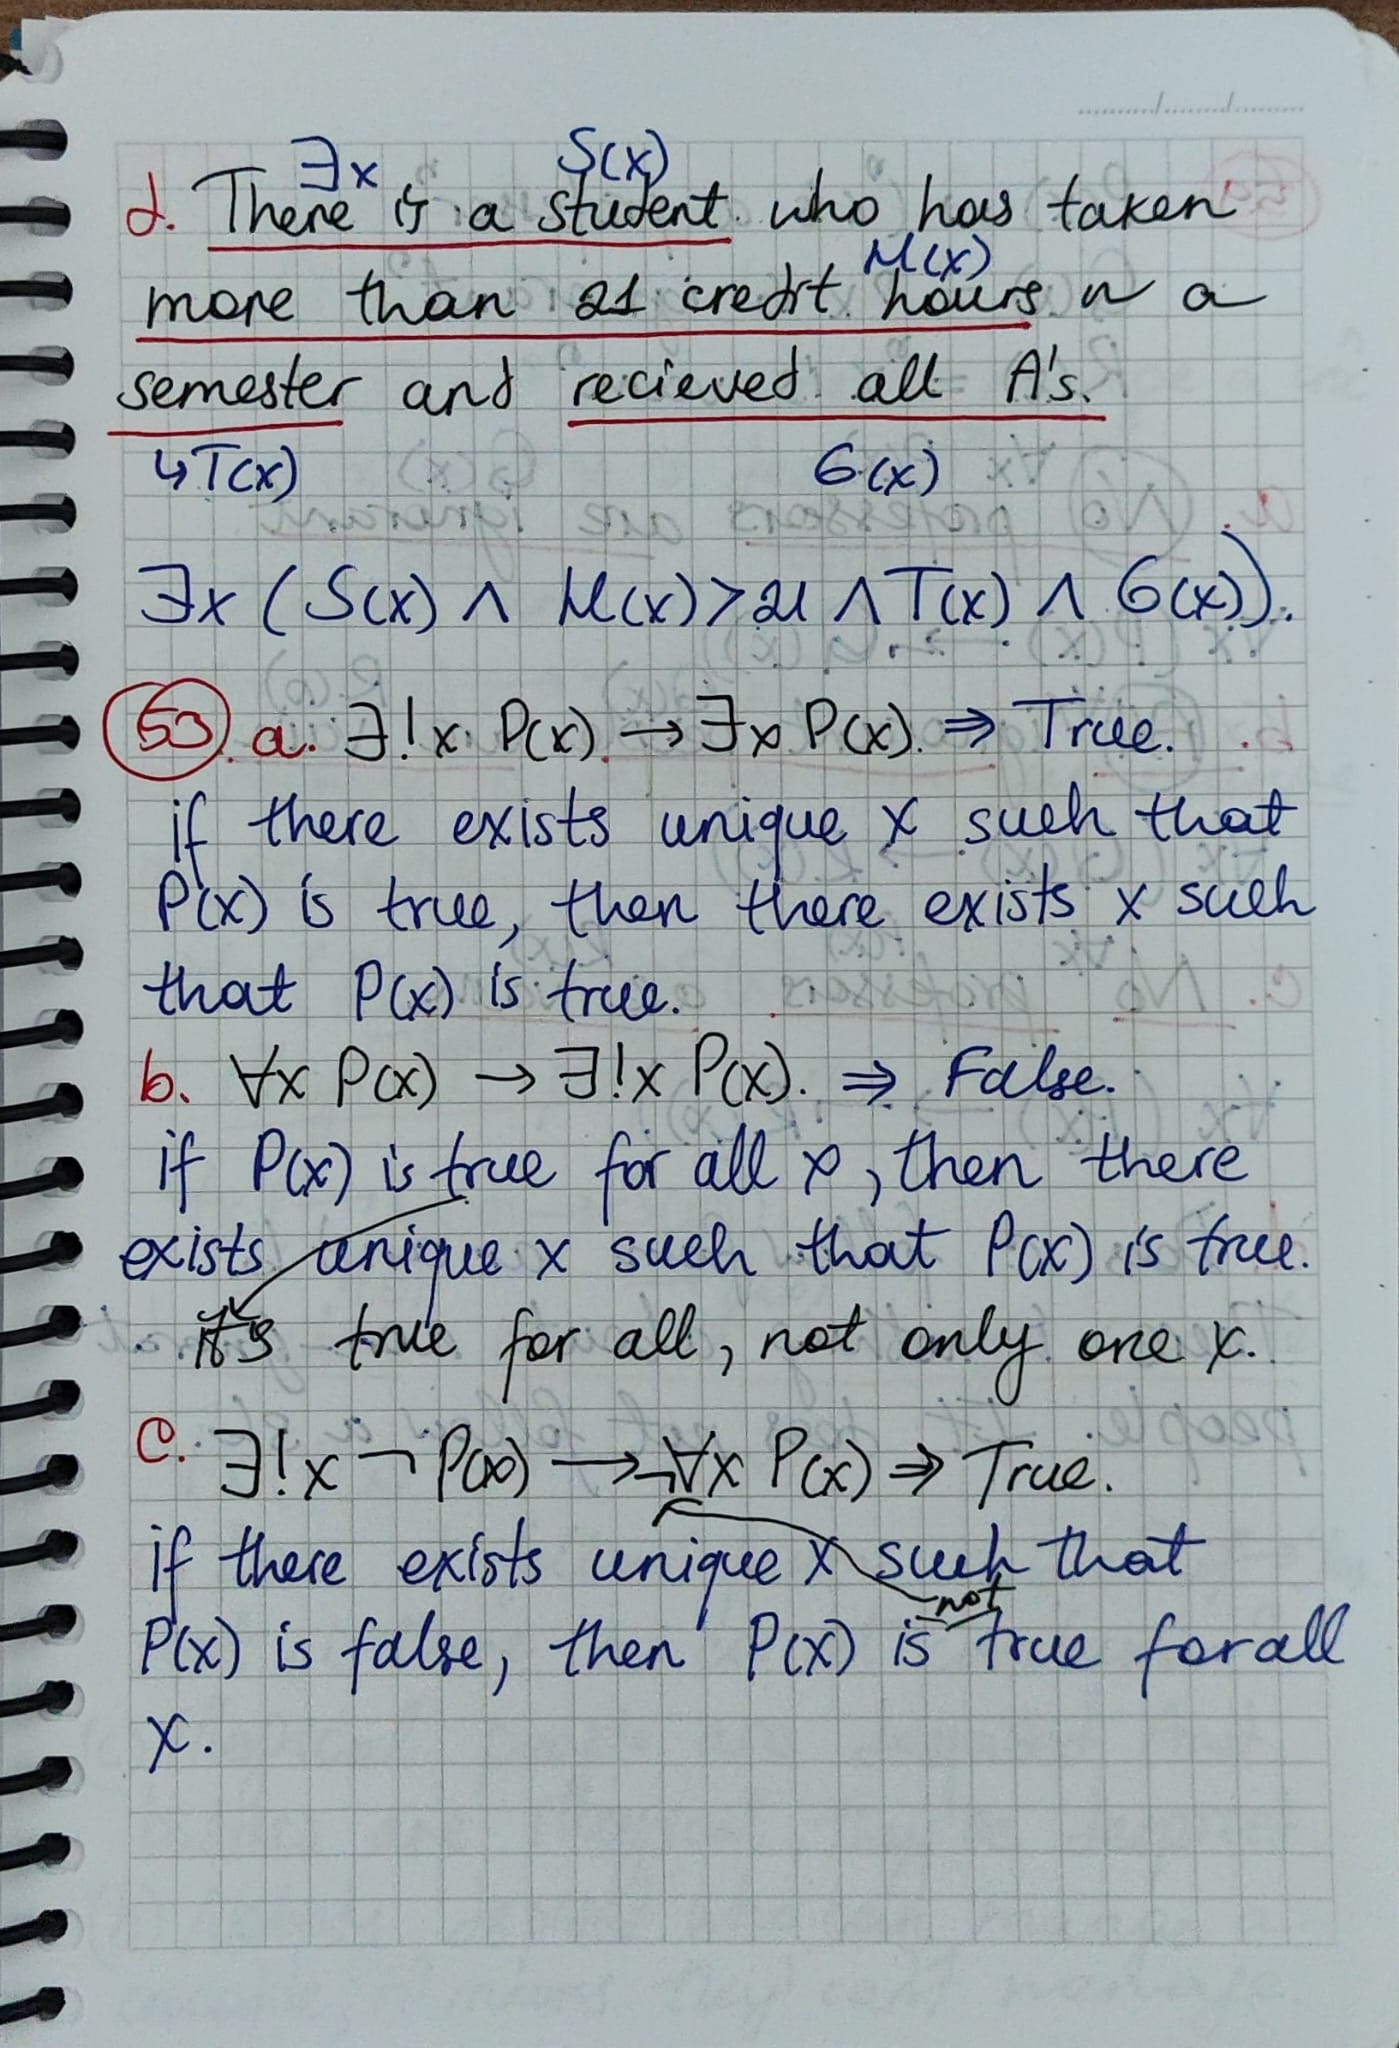 ∃x S(x)
d. There is a student who has taken
M(x)
more than 21 credit hours in a
semester and recieved all A's.
↳T(x) G(x)
∃x (S(x) ∧ M(x)>21 ∧ T(x) ∧ G(x)).
53. a. ∃!x P(x) → ∃x P(x). ⇒ True.
if there exists unique x such that
P(x) is true, then there exists x such
that P(x) is true.
b. ∀x P(x) → ∃!x P(x). ⇒ False.
if P(x) is true for all x, then there
exists unique x such that P(x) is true.
it's true for all, not only one x.
c. ∃!x ¬P(x) → ¬∀x P(x) ⇒ True.
if there exists unique x such that
not
P(x) is false, then P(x) is true for all
x.